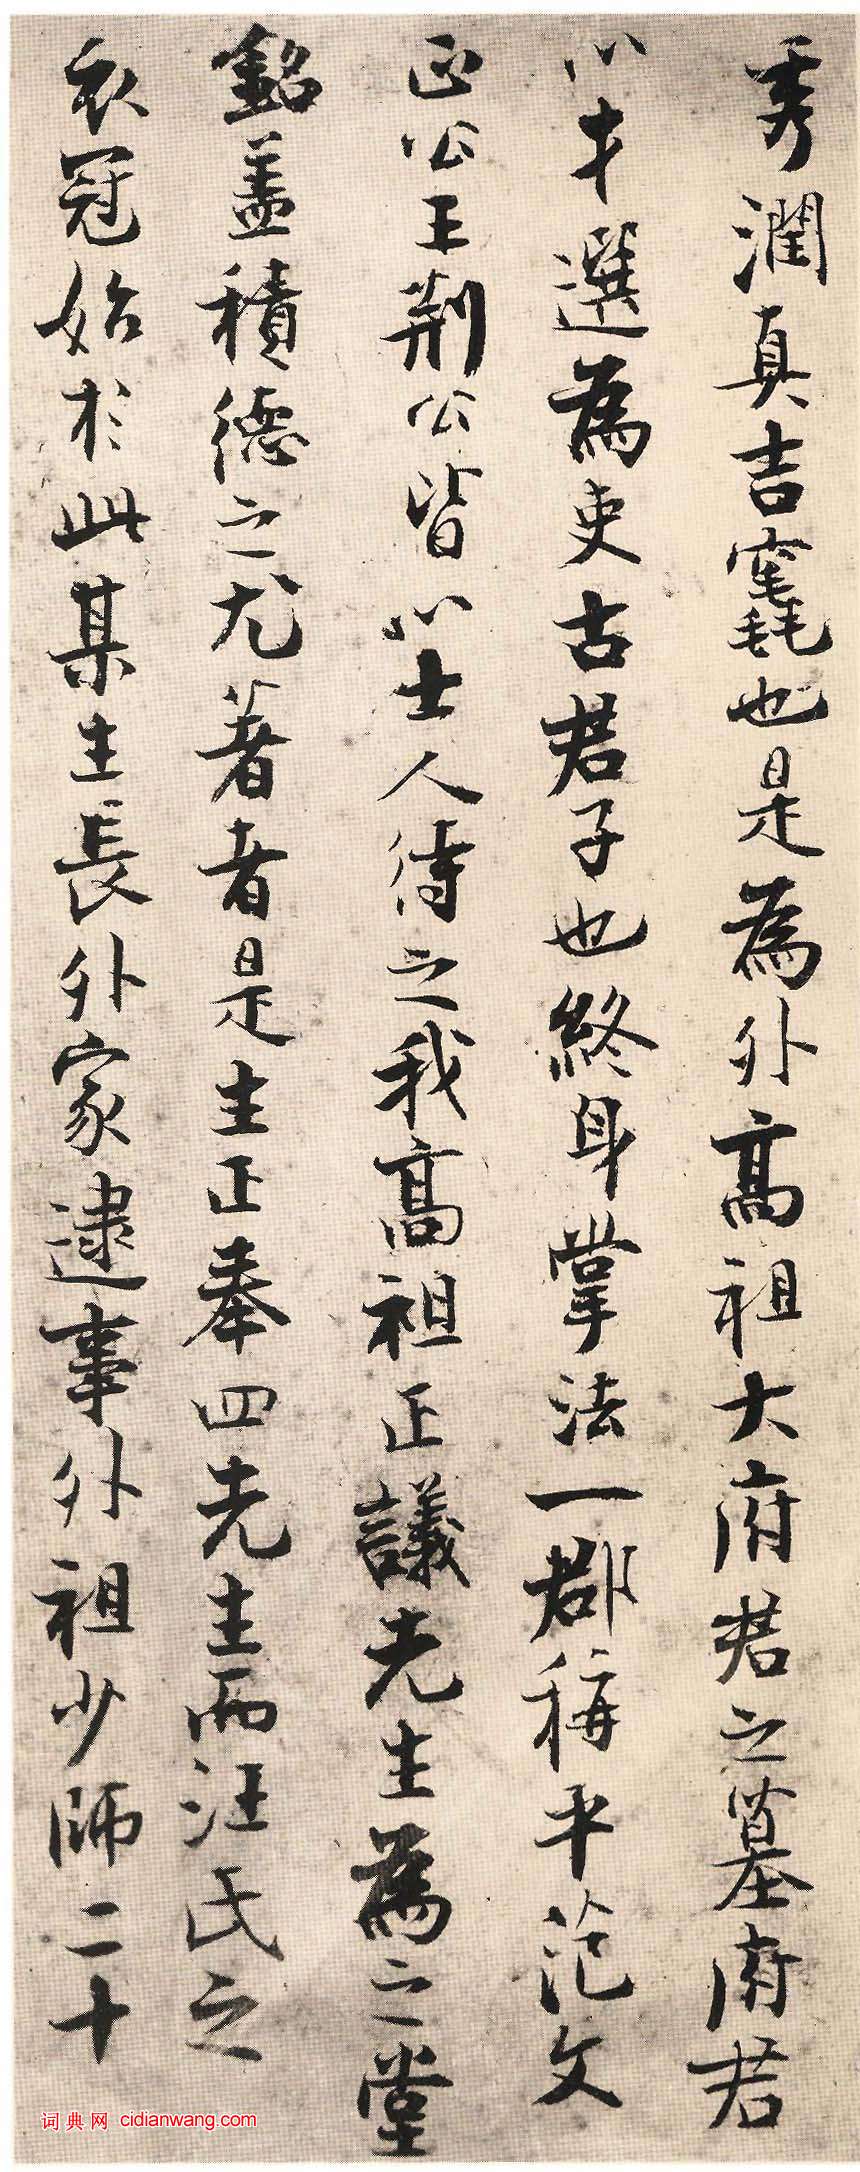 秀潤真吉竁也是為外高祖大府君之墓府君
以才選為吏古君子也終身掌法一郡稱平范文
正公王荆公皆以士人待之我高祖正議先生為之堂
銘盖積德之尤著者是生正奉四先生而汪氏之
衣冠始於此某生長外家逮事外祖少師二十
词典网 cidianwang.com